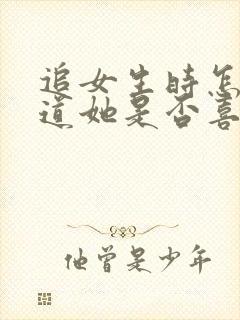 追女生时怎
道她是否喜
他曾是少年